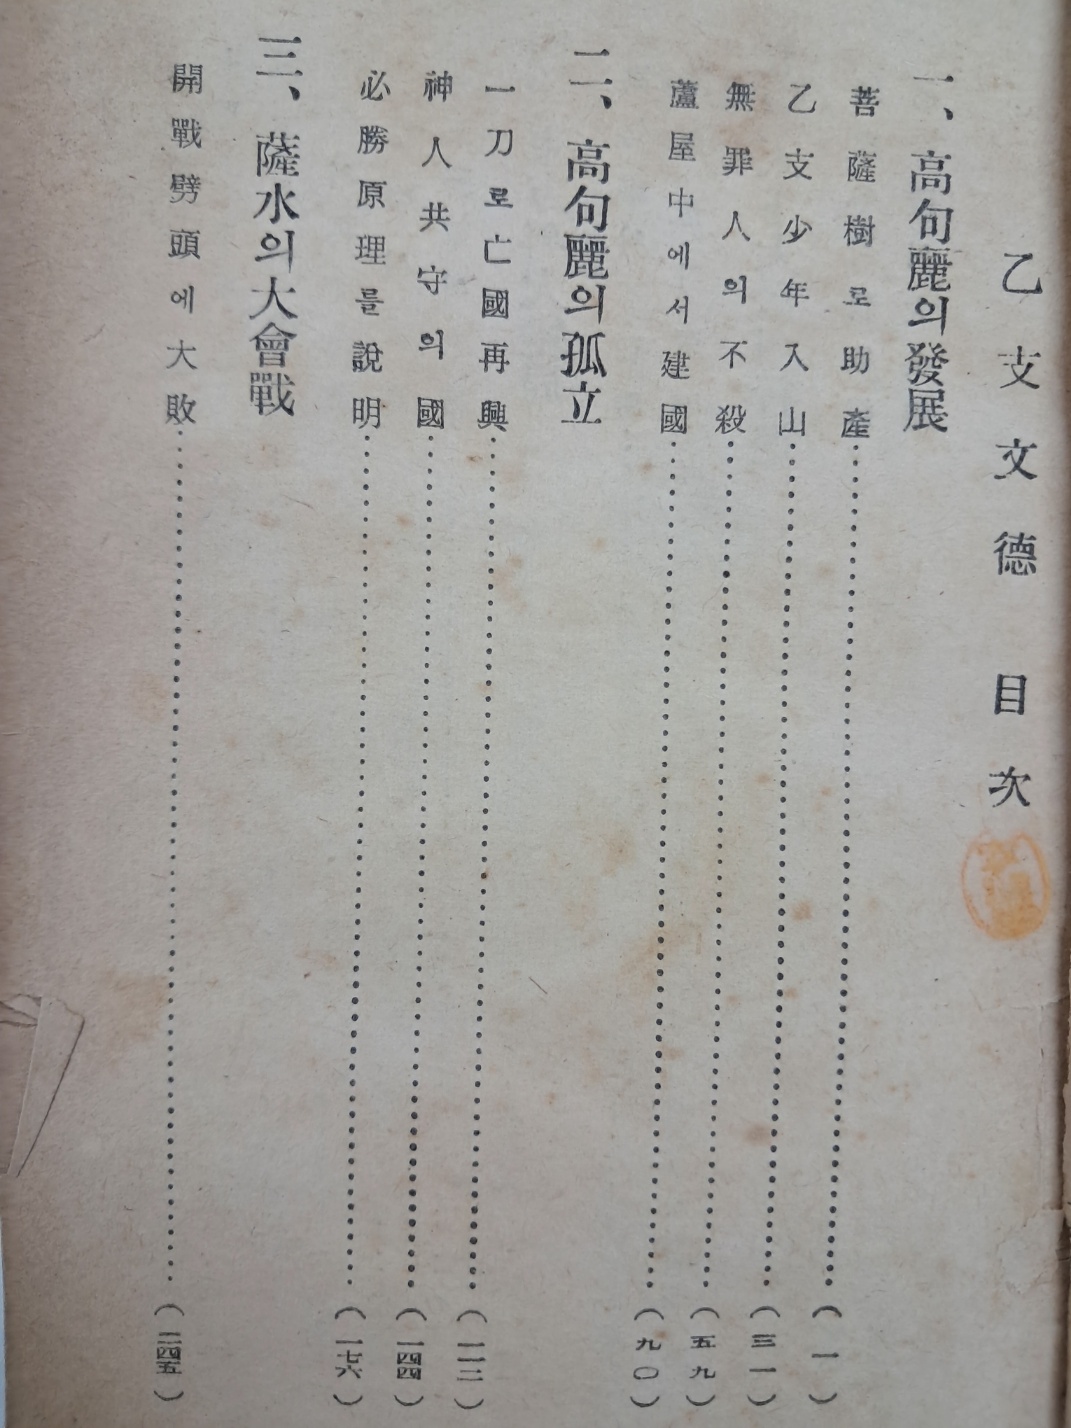 乙支文德 目次
一、高句麗의發展
菩薩樹로助產……(一)
乙支少年入山……(三一)
無罪人의不殺……(五九)
蘆屋中에서建國……(九〇)
二、高句麗의孤立
一刀로亡國再興……(一一二)
神人共守의國……(一四四)
必勝原理를說明……(一七六)
三、薩水의大會戰
開戰劈頭에大敗……(二四五)